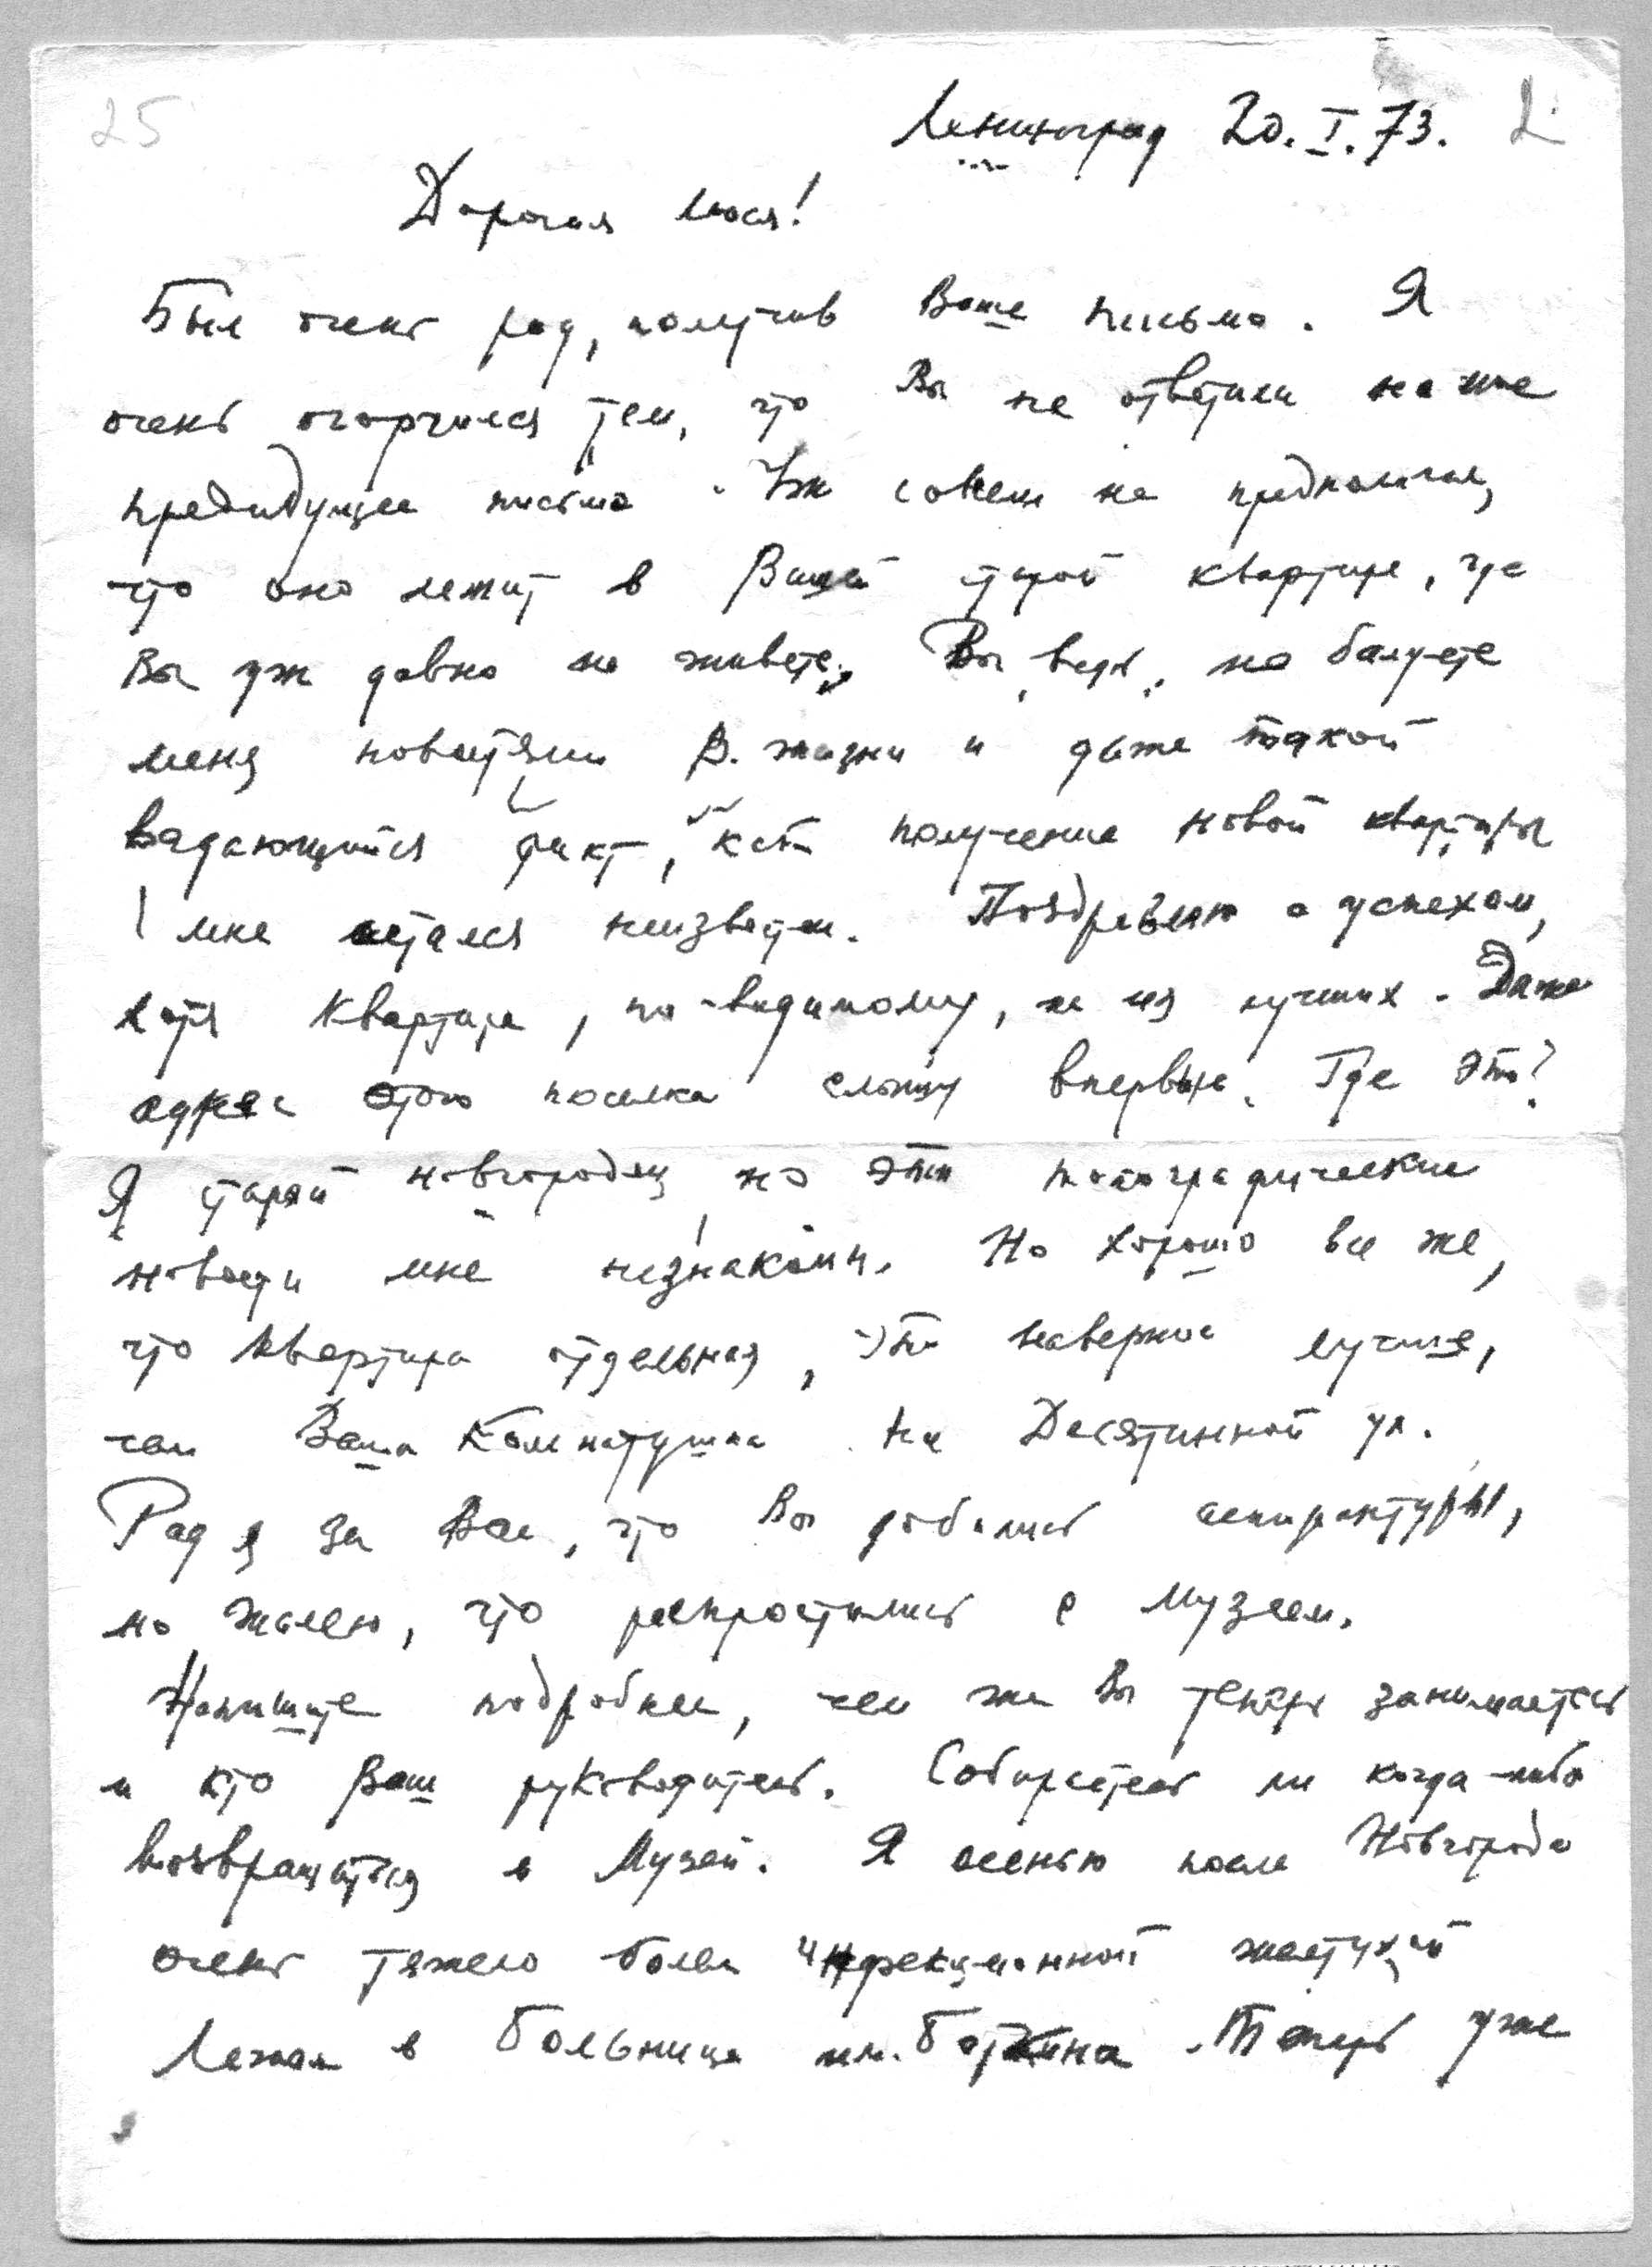 25
Ленинград 20.I.73.
Дорогая Люся!
Был очень рад, получив Ваше письмо. Я
очень огорчился тем, что Вы не ответили на мое
предыдущее письмо. Уж совсем не предполагал,
что оно лежит в Вашей старой квартире, где
Вы уж давно не живете. Вы, ведь, не балуете
меня новостями В. жизни и даже такой
выдающийся факт, как получение новой квартиры
мне остался неизвестен. Поздравляю с успехом,
хотя квартира, по-видимому, не из лучших. Даже
адрес этого поселка слышу впервые. Где это?
Я старый новгородец, но эти топографические
новости мне незнакомы. Но хорошо все же,
что квартира отдельная, это наверное лучше,
чем Ваша комнатушка на Десятинной ул.
Рад я за Вас, что Вы добились аспирантуры,
но жалею, что распростились с Музеем.
Напишите подробнее, чем же Вы теперь занимаетесь
и кто Ваш руководитель. Собираетесь ли когда-либо
возвращаться в Музей. Я осенью после Новгорода
очень тяжело болел инфекционной желтухой
Лежал в больнице им. Боткина. Теперь уже